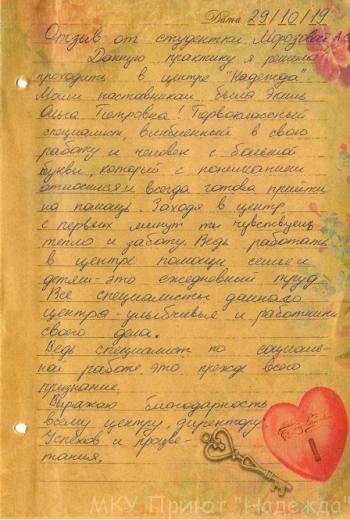 Дата 29/10/19
Отзыв от студентки Морозовой А.С
Данную практику я решила
проходить в центре "Надежда"
Моим наставником была Экиль
Ольга Петровна! Первоклассный
специалист, влюбленный в свою
работу и человек с большой
буквы, который с пониманием
относился и всегда готова прийти
на помощь. Заходя в центр
с первых минут ты чувствуешь
тепло и заботу. Ведь работать
в центре помощи семье и
детям - это ежедневный труд.
Все специалисты данного
центра - улыбчивые и работники
своего дела.
Ведь специалист по социаль-
ной работе это прежде всего
призвание.
Выражаю благодарность
всему центру, директору
Успехов и процве-
тания.
МКУ Приют "Надежда"